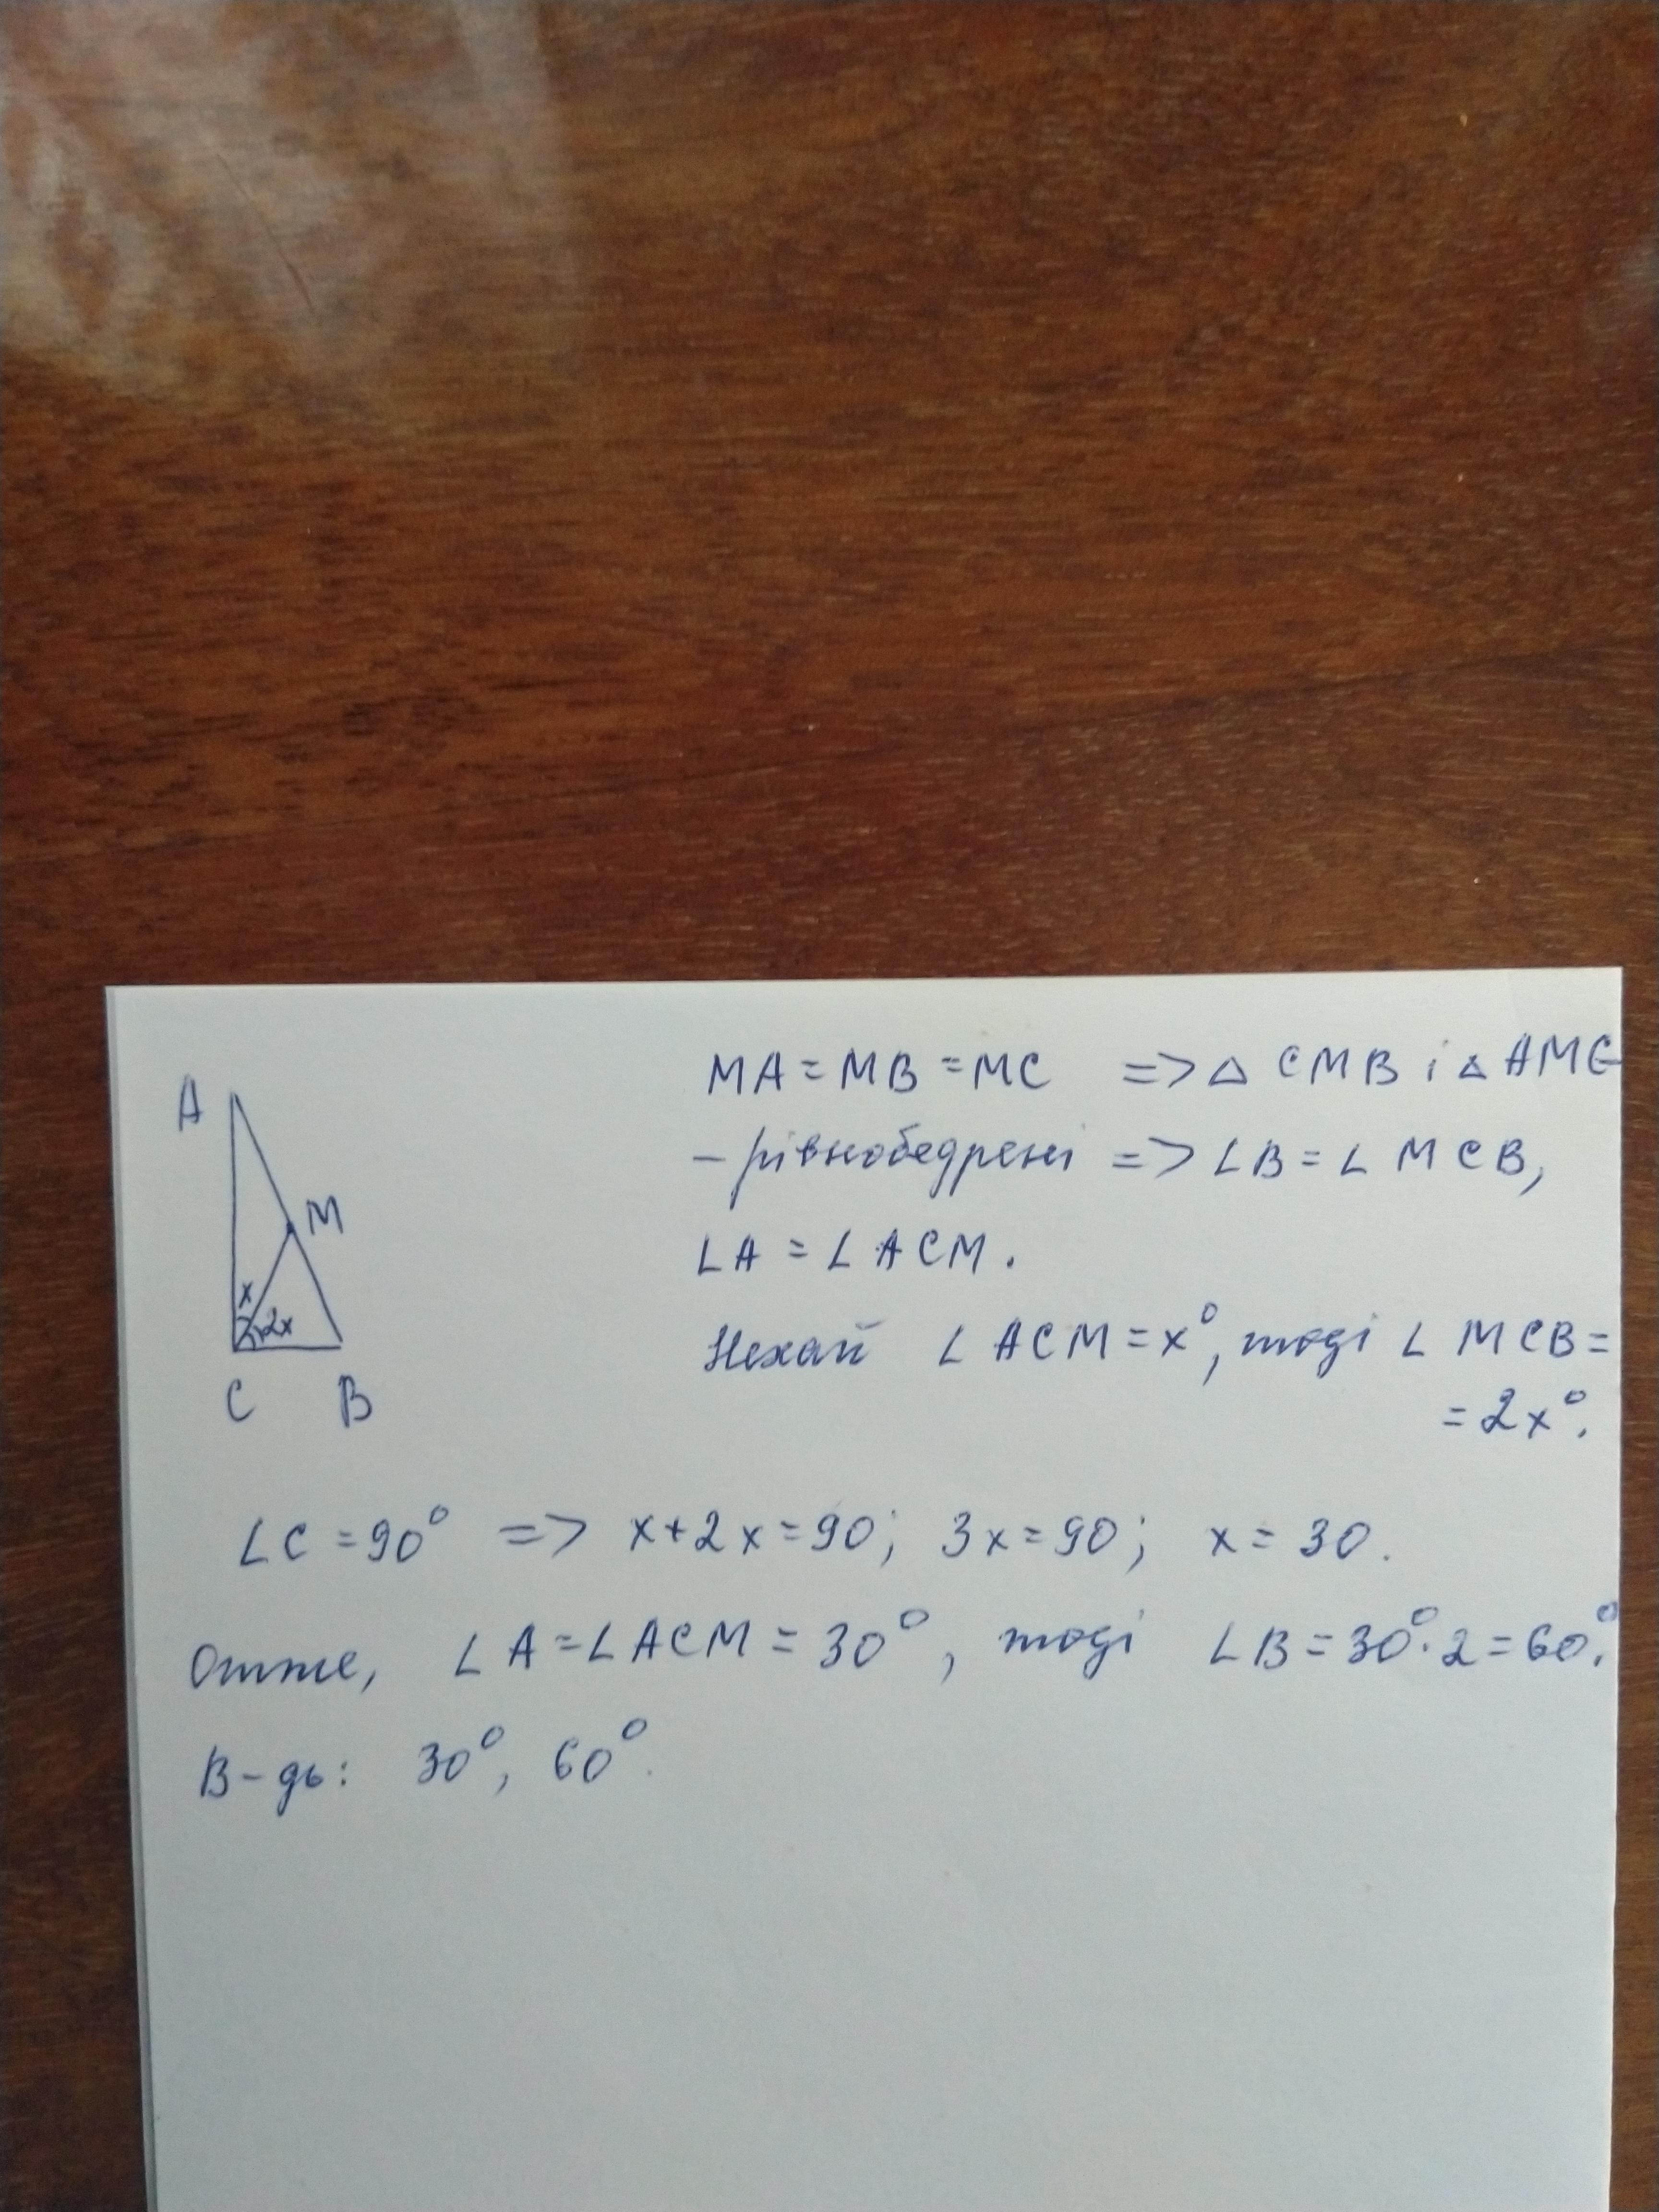 MA = MB = MC => △ CMB і △ AMC
A
M
x
2x
C B
– рівнобедрені => ∠B = ∠ MCB,
∠A = ∠ACM.
Нехай ∠ ACM = x°, тоді ∠ MCB =
= 2x°.
∠C = 90° => x+2x = 90; 3x = 90; x = 30.
Отже, ∠A = ∠ACM = 30°, тоді ∠B = 30°·2 = 60°.
В-дь: 30°, 60°.